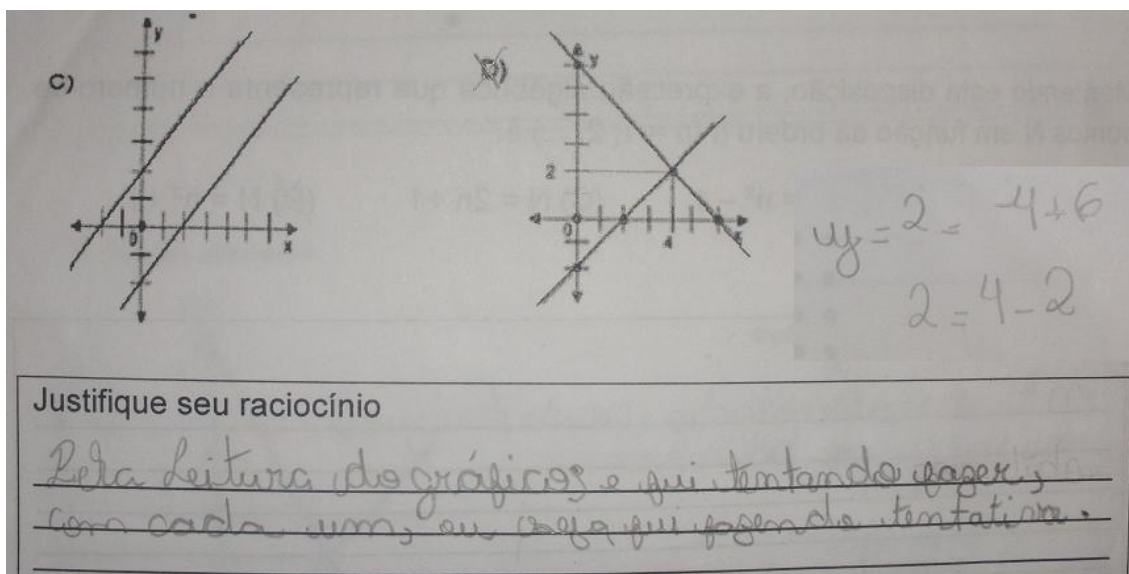 C)
y
0
x
D)
y
2
0
4
x
y = 2 = -4+6
2 = 4-2
Justifique seu raciocínio
Pela Leitura do gráficos e fui tentando fazer,
com cada um, ou seja fui fazendo tentativa.